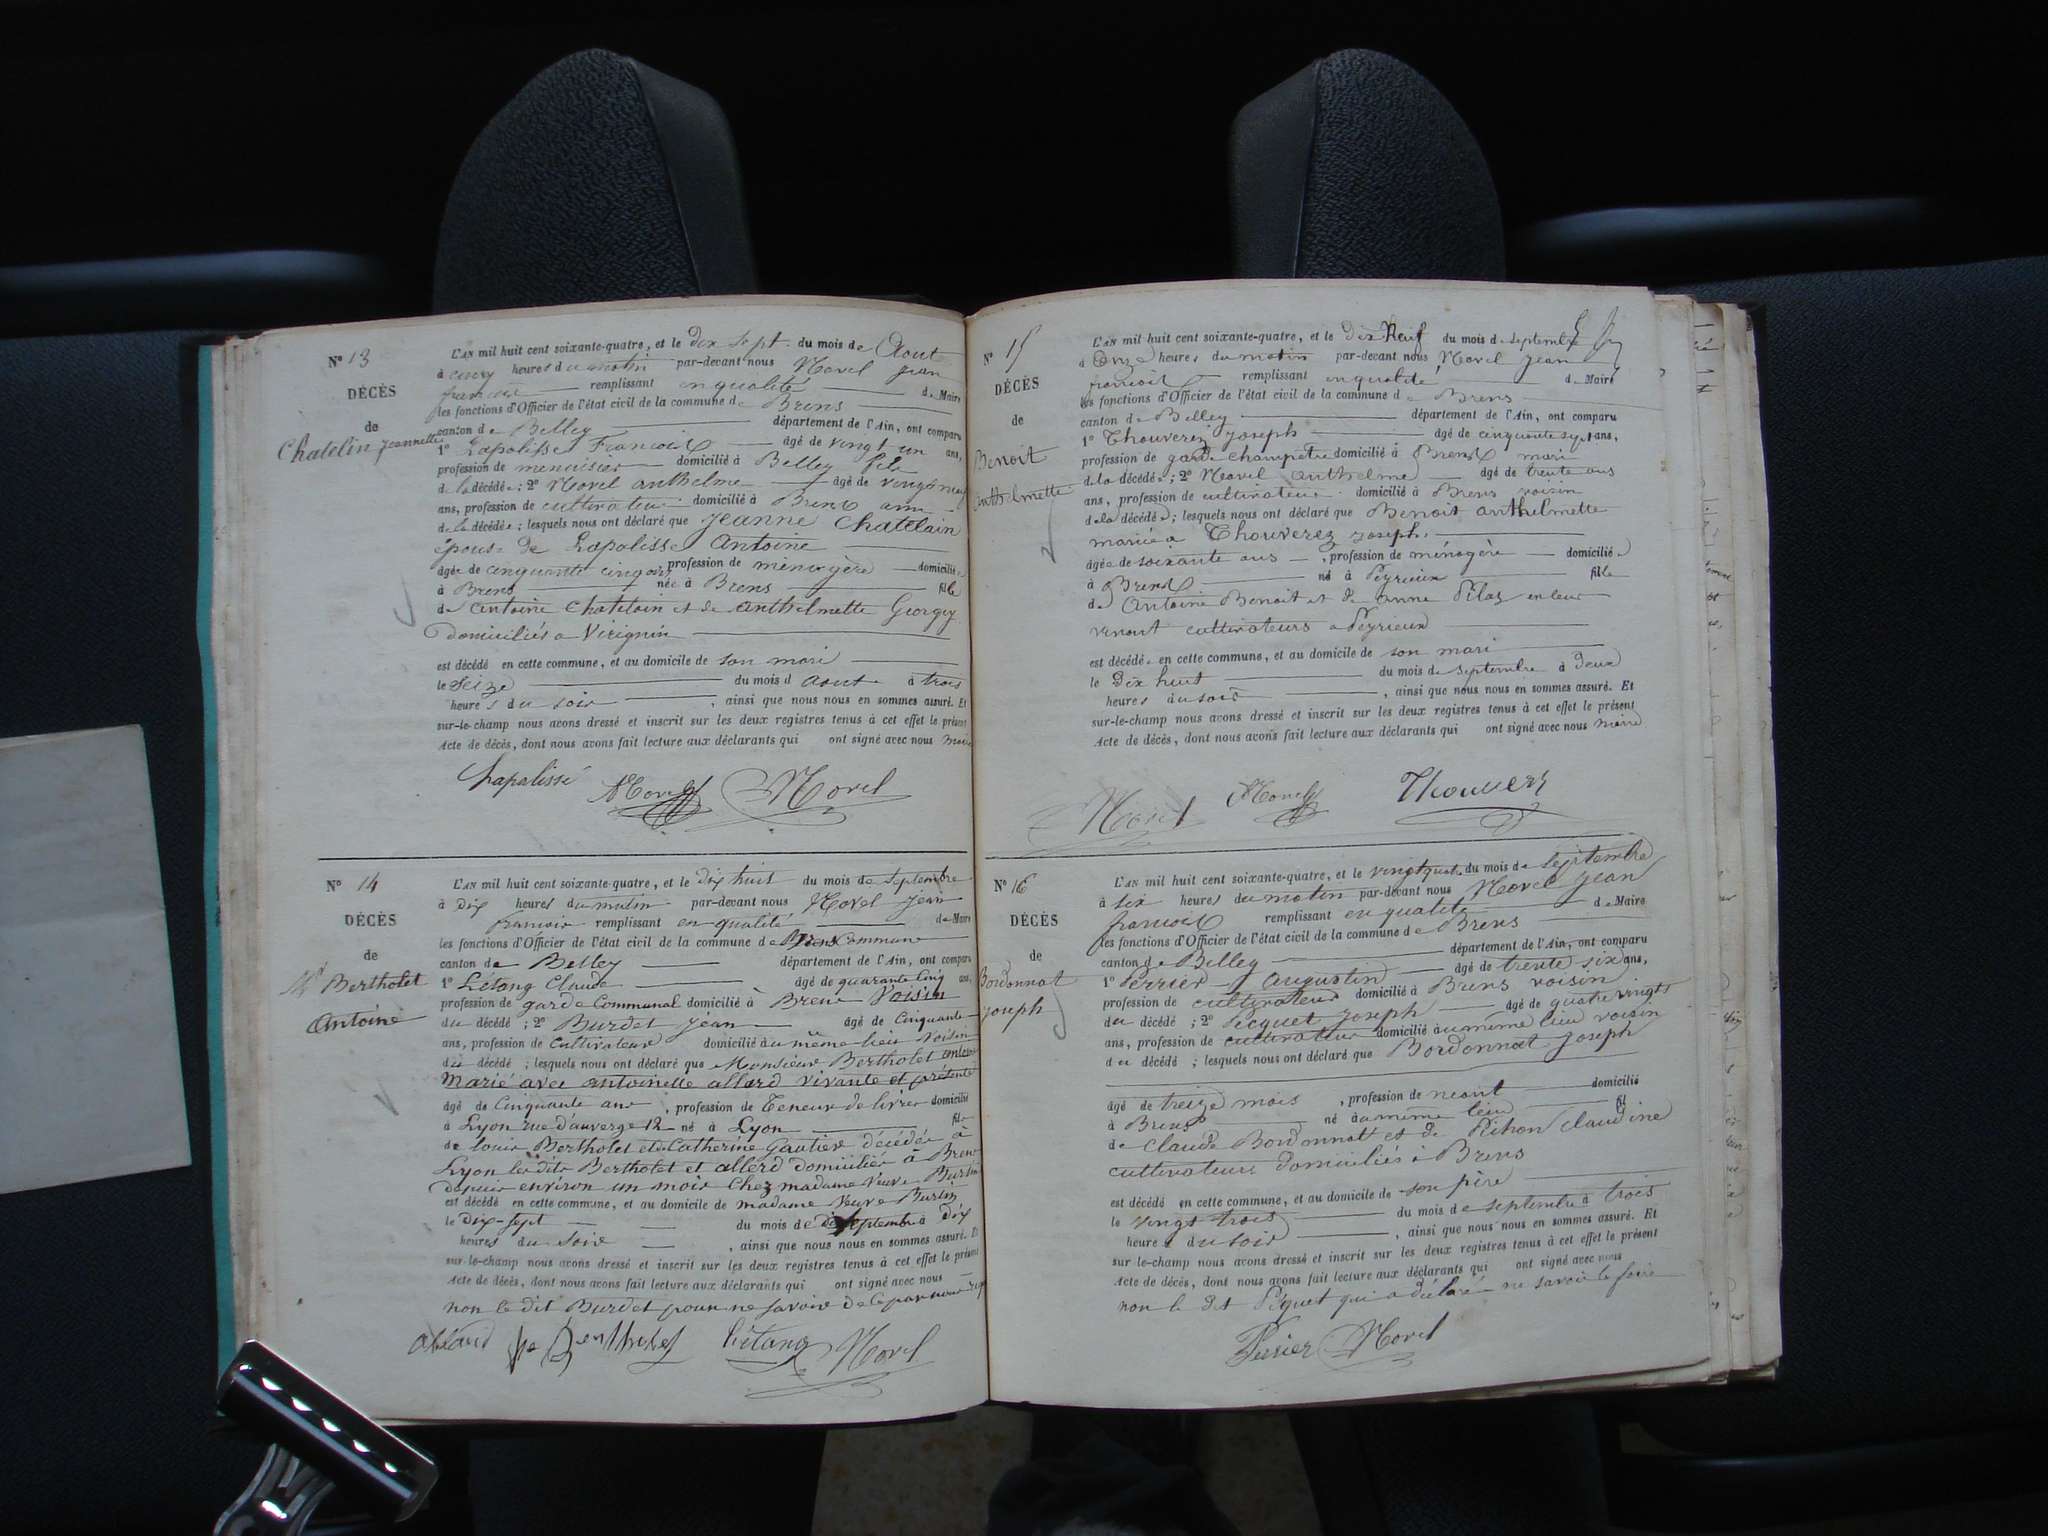 N° 13
DÉCÈS
de
Chatelin Jeannette
L'AN mil huit cent soixante-quatre, et le dix sept du mois de Aout
à cinq heures du matin par-devant nous Morel Jean
francois remplissant en qualité de Maire
les fonctions d'Officier de l'état civil de la commune de Brens
canton de Belley département de l'Ain, ont comparu
1° Lapalisse Francois âgé de vingt un ans,
profession de menuisier domicilié à Belley fils
de la décédée ; 2° Morel anthelme âgé de vingt neuf
ans, profession de cultivateur domicilié à Brens ami
de la décédée ; lesquels nous ont déclaré que Jeanne Chatelain
épouse de Lapalisse Antoine
âgée de cinquante cinq ans profession de ménagère domiciliée
à Brens née à Brens fille
de Antoine Chatelain et de Anthelmette Georgey
domiciliés a Virignin
est décédé en cette commune, et au domicile de son mari
le Seize du mois d Aout à trois
heures du soir , ainsi que nous nous en sommes assuré. Et
sur-le-champ nous avons dressé et inscrit sur les deux registres tenus à cet effet le présent
Acte de décès, dont nous avons fait lecture aux déclarants qui ont signé avec nous Maire
Lapalisse Morel Morel
N° 14
DÉCÈS
de
Berthelet
Antoine
L'AN mil huit cent soixante-quatre, et le dix huit du mois de Septembre
à dix heures du matin par-devant nous Morel Jean
francois remplissant en qualité de Maire
les fonctions d'Officier de l'état civil de la commune de Brens Commune
canton de Belley département de l'Ain, ont comparu
1° Létang Claude âgé de quarante cinq ans,
profession de garde Communal domicilié à Brens Voisin
du décédé ; 2° Burdet Jean âgé de Cinquante
ans, profession de Cultivateur domicilié au même lieu Voisin
du décédé ; lesquels nous ont déclaré que Monsieur Berthelet antoine
Marié avec antoinette allard vivante et présente
âgé de Cinquante ans , profession de Teneur de livres domicilié
à Lyon rue d'auverge 12 né à Lyon fils
de louis Berthelet et de Catherine Gautier décédés à
Lyon les dits Berthelet et allerd domiciliés à Brens
depuis environ un mois Chez madame Veuve Bursin
est décédé en cette commune, et au domicile de madame Veuve Bursin
le dix-sept du mois de Septembre à dix
heures du soir , ainsi que nous nous en sommes assuré. Et
sur-le-champ nous avons dressé et inscrit sur les deux registres tenus à cet effet le présent
Acte de décès, dont nous avons fait lecture aux déclarants qui ont signé avec nous
non le dit Burdet pour ne savoir de ce par nous
Allard Létang Morel
N° 15
DÉCÈS
de
Benoit
Anthelmette
L'AN mil huit cent soixante-quatre, et le dix Neuf du mois de Septembre
à Onze heures du matin par-devant nous Morel Jean
francois remplissant en qualité de Maire
les fonctions d'Officier de l'état civil de la commune de Brens
canton de Belley département de l'Ain, ont comparu
1° Thouverez Joseph âgé de cinquante sept ans,
profession de garde champêtre domicilié à Brens mari
de la décédée ; 2° Morel anthelme âgé de trente ans
ans, profession de cultivateur domicilié à Brens voisin
de la décédée ; lesquels nous ont déclaré que Benoit anthelmette
mariée a Thouverez Joseph
âgée de soixante ans , profession de ménagère domiciliée
à Brens né à Peyrieux fille
de Antoine Benoit et de anne Pilaz en leur
vivant cultivateurs a Peyrieux
est décédée en cette commune, et au domicile de son mari
le Dix huit du mois de septembre à Deux
heures du soir , ainsi que nous nous en sommes assuré. Et
sur-le-champ nous avons dressé et inscrit sur les deux registres tenus à cet effet le présent
Acte de décès, dont nous avons fait lecture aux déclarants qui ont signé avec nous Maire
Morel Morel Thouverez
N° 16
DÉCÈS
de
Bordonnat
Joseph
L'AN mil huit cent soixante-quatre, et le vingt quatre du mois de Septembre
à six heures du matin par-devant nous Morel Jean
francois remplissant en qualité de Maire
les fonctions d'Officier de l'état civil de la commune de Brens
canton de Belley département de l'Ain, ont comparu
1° Perrier Augustin âgé de trente six ans,
profession de cultivateur domicilié à Brens voisin
du décédé ; 2° Pecquet Joseph âgé de quatre vingts
ans, profession de cultivateur domicilié au même lieu voisin
du décédé ; lesquels nous ont déclaré que Bordonnat Joseph
âgé de treize mois , profession de néant domicilié
à Brens né au même lieu fil
de Claude Bordonnat et de Pihon Claudine
cultivateurs domiciliés à Brens
est décédé en cette commune, et au domicile de son père
le vingt trois du mois de septembre à trois
heures du soir , ainsi que nous nous en sommes assuré. Et
sur-le-champ nous avons dressé et inscrit sur les deux registres tenus à cet effet le présent
Acte de décès, dont nous avons fait lecture aux déclarants qui ont signé avec nous
non le dit Péquet qui a déclaré ne savoir le faire
Perrier Morel